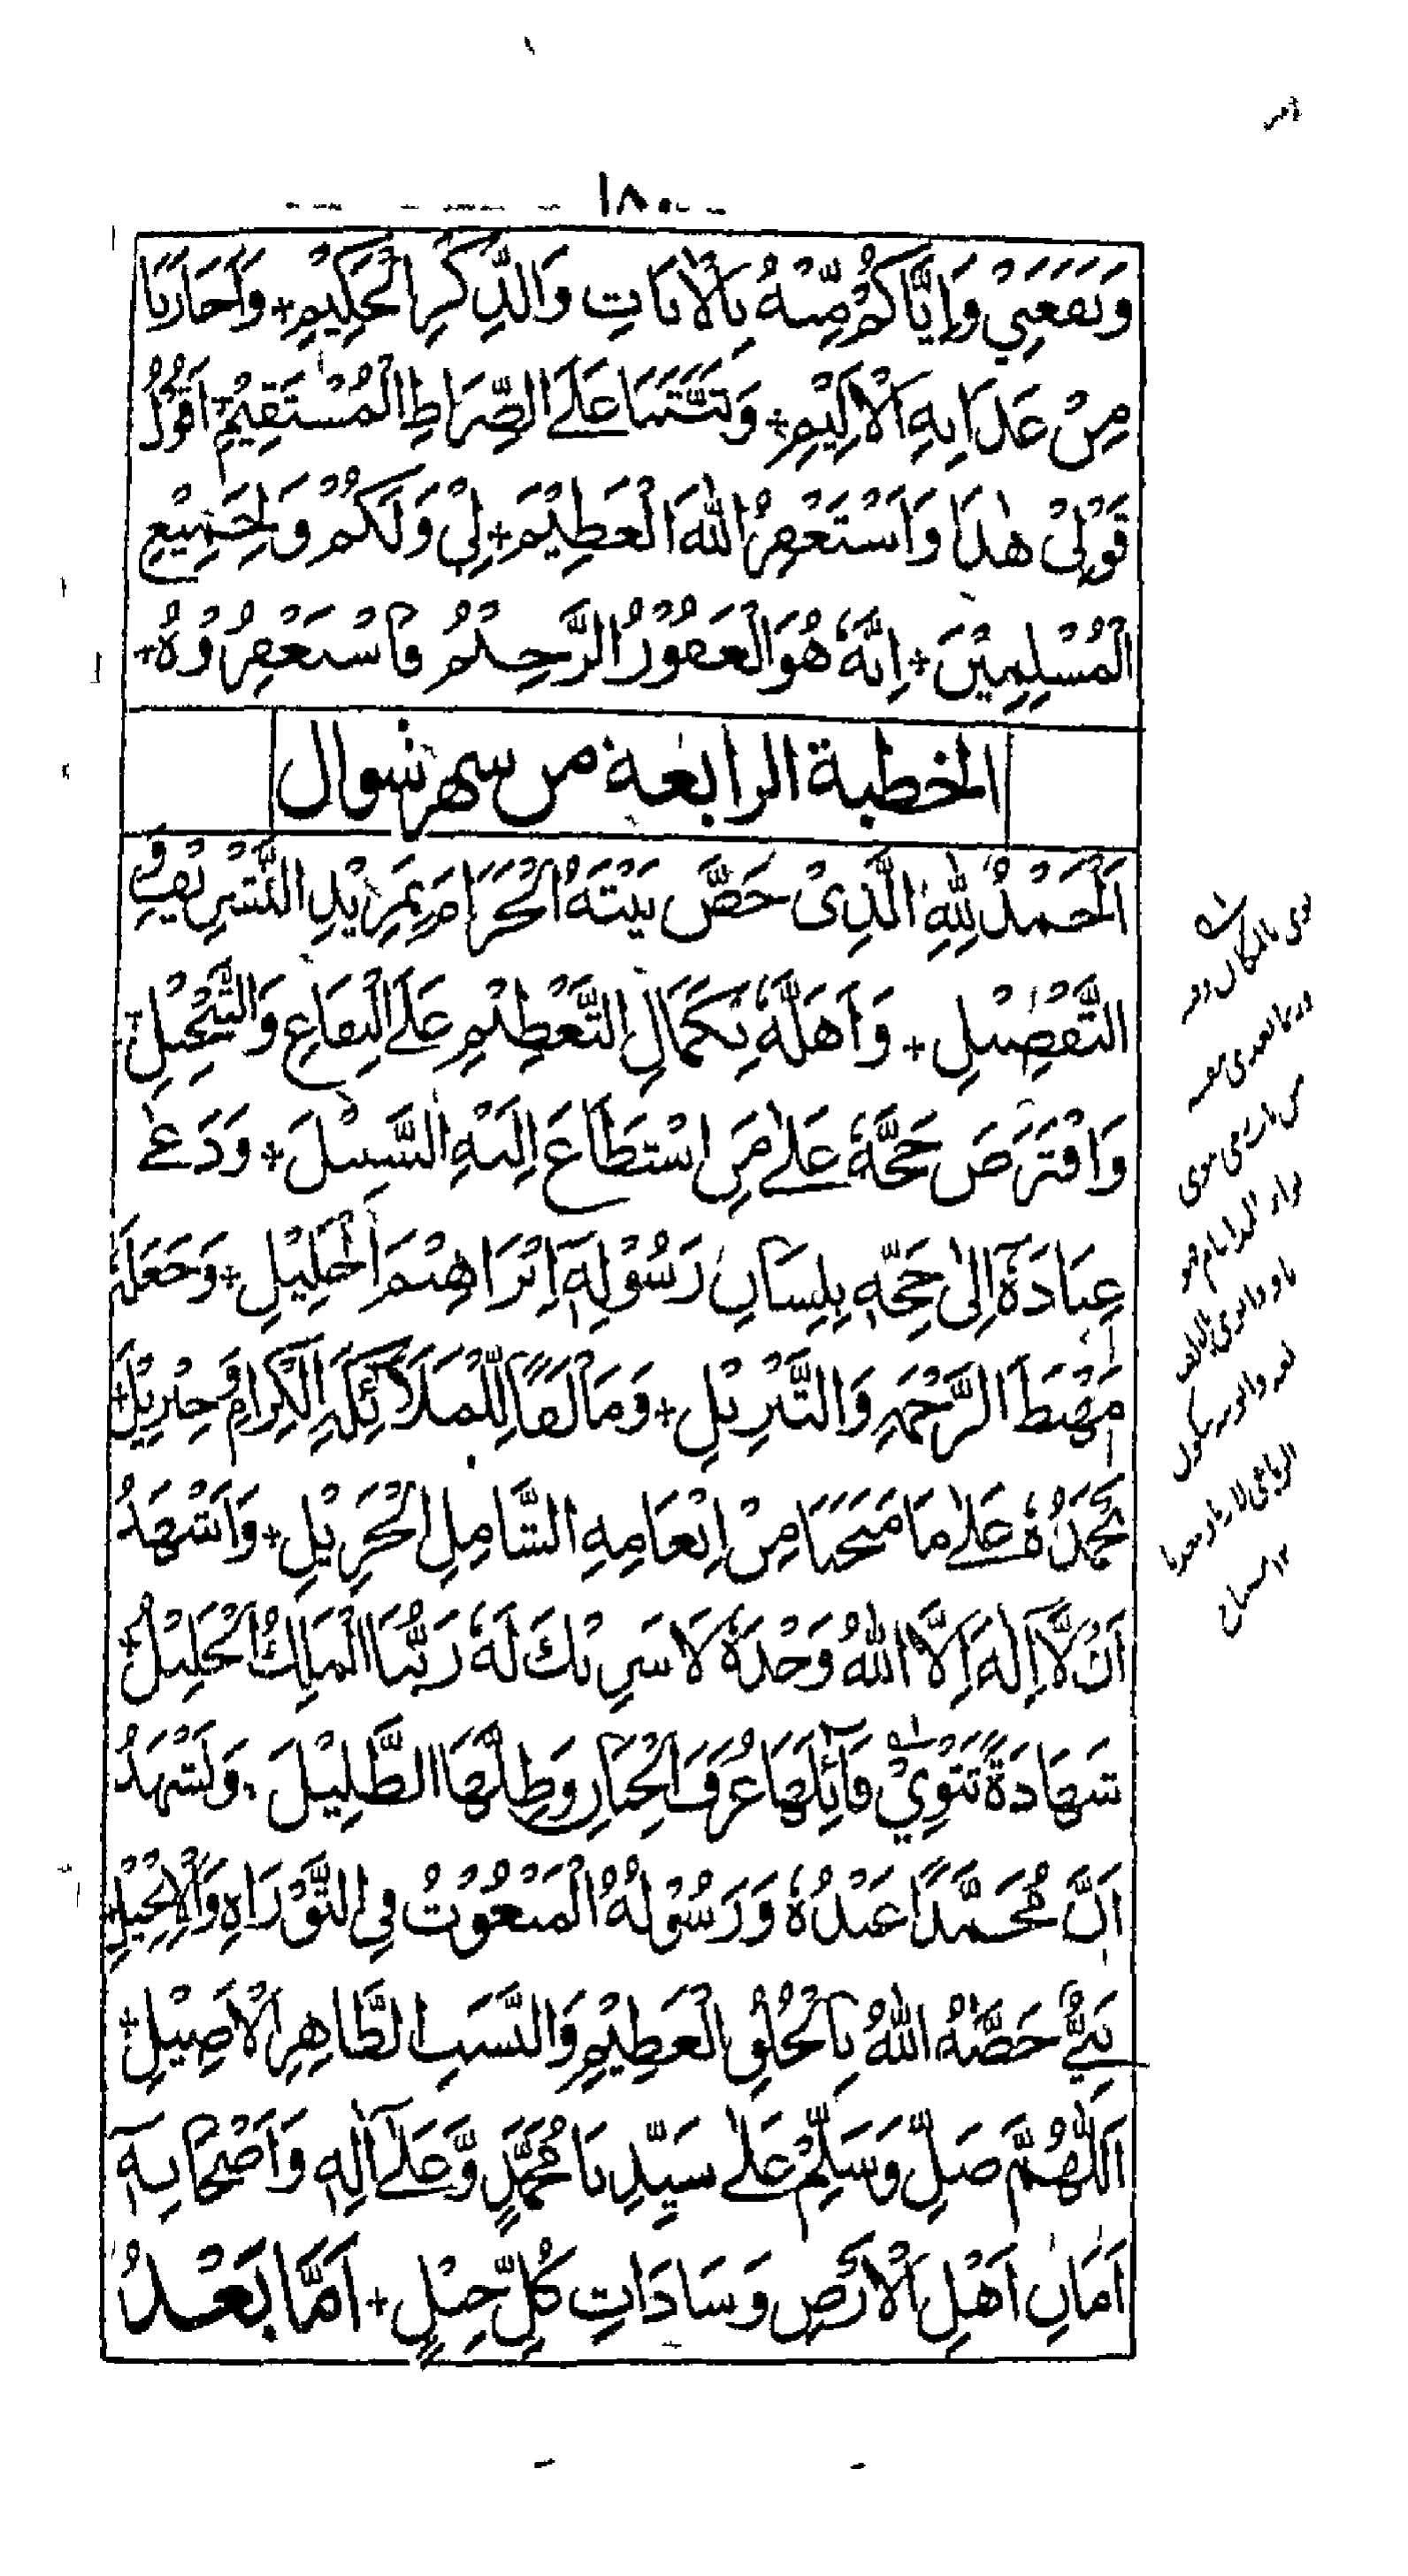 ١٨٠
وَنَفَعَنِيْ وَاِيَّاكُمْ مِّنْهُ بِالْاٰيَاتِ وَالذِّكْرِ الْحَكِيْمِ + وَاَجَارَنَا
مِنْ عَذَابِهِ الْاَلِيْمِ + وَثَبَّتَنَا عَلَى الصِّرَاطِ الْمُسْتَقِيْمِ + اَقُوْلُ
قَوْلِيْ هٰذَا وَاَسْتَغْفِرُ اللهَ الْعَظِيْمَ + لِيْ وَلَكُمْ وَلِجَمِيْعِ
الْمُسْلِمِيْنَ + اِنَّهٗ هُوَ الْغَفُوْرُ الرَّحِيْمُ فَاسْتَغْفِرُوْهُ +
الخطبة الرابعة من شهر شوال
اَلْحَمْدُ لِلّٰهِ الَّذِىْ خَصَّ بَيْتَهُ الْحَرَامَ بِمَزِيْدِ التَّشْرِيْفِ وَ
التَّفْضِيْلِ + وَاَهَّلَهٗ بِكَمَالِ التَّعْظِيْمِ عَلَى الْبِقَاعِ وَالتَّبْجِيْلِ +
وَافْتَرَضَ حَجَّهٗ عَلٰى مَنِ اسْتَطَاعَ اِلَيْهِ السَّبِيْلَ + وَدَعٰى
عِبَادَهٗٓ اِلٰى حَجِّهٖ بِلِسَانِ رَسُوْلِهٖٓ اِبْرَاهِيْمَ الْخَلِيْلِ + وَجَعَلَهٗ
مَهْبَطَ الرَّحْمَةِ وَالتَّنْزِيْلِ + وَمَاْلَفًا لِّلْمَلَآئِكَةِ الْكِرَامِ وَجِبْرِيْلَ +
نَحْمَدُهٗ عَلٰى مَا مَنَحَنَا مِنْ اِنْعَامِهِ الشَّامِلِ الْجَزِيْلِ + وَاَشْهَدُ
اَنْ لَّآ اِلٰهَ اِلَّا اللهُ وَحْدَهٗ لَا شَرِيْكَ لَهٗ رَبُّنَا الْمَلِكُ الْجَلِيْلُ +
شَهَادَةً تَثْوِيْ قَآئِلَهَا غُرَفَ الْجِنَانِ وَظِلَّهَا الظَّلِيْلَ + وَنَشْهَدُ
اَنَّ مُحَمَّدًا عَبْدُهٗ وَرَسُوْلُهُ الْمَنْعُوْتُ فِي التَّوْرَاةِ وَالْاِنْجِيْلِ +
نَبِيٌّ خَصَّهُ اللهُ بِالْخُلُقِ الْعَظِيْمِ وَالنَّسَبِ الطَّاهِرِ الْاَصِيْلِ +
اَللّٰهُمَّ صَلِّ وَسَلِّمْ عَلٰى سَيِّدِنَا مُحَمَّدٍ وَّعَلٰٓى اٰلِهٖ وَاَصْحَابِهٖٓ
اَمَانِ اَهْلِ الْاَرْضِ وَسَادَاتِ كُلِّ جِيْلٍ + اَمَّا بَعْدُ